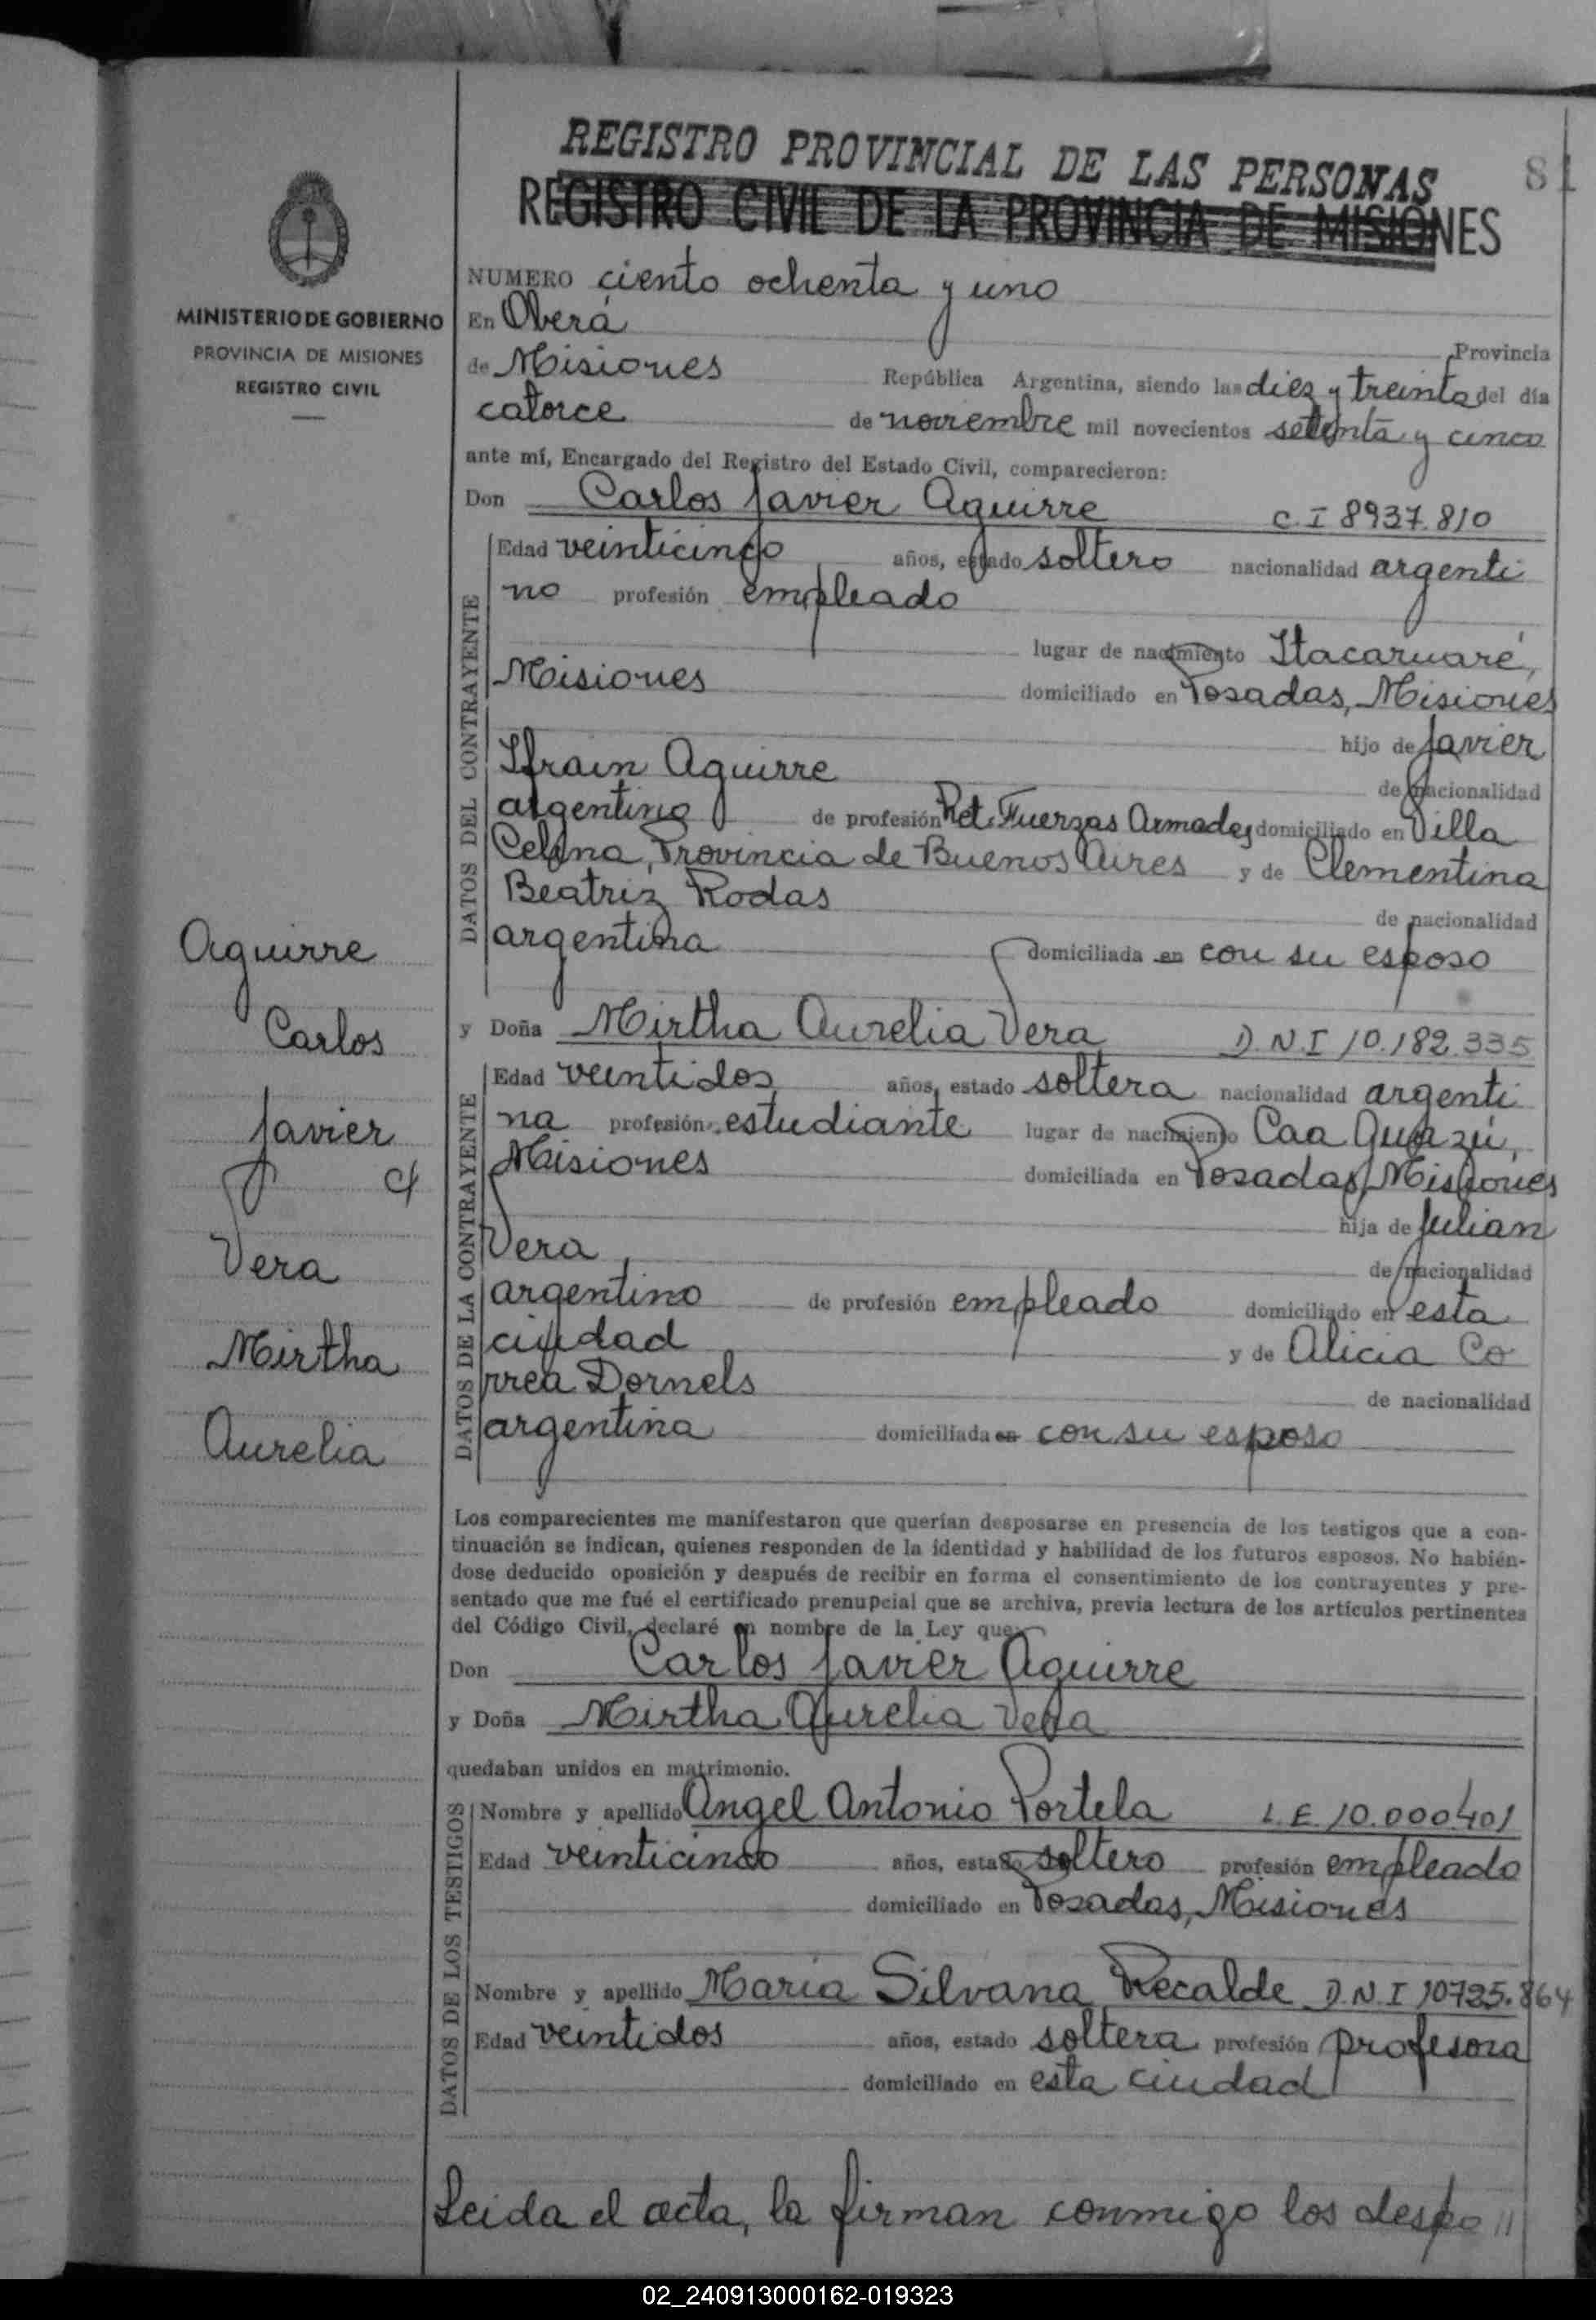 REGISTRO PROVINCIAL DE LAS PERSONAS
81
REGISTRO CIVIL DE LA PROVINCIA DE MISIONES
MINISTERIO DE GOBIERNO
PROVINCIA DE MISIONES
REGISTRO CIVIL
NUMERO ciento ochenta y uno
En Oberá
Provincia
de Misiones República Argentina, siendo las diez y treinta del día
catorce de noviembre mil novecientos setenta y cinco
ante mí, Encargado del Registro del Estado Civil, comparecieron:
Don Carlos Javier Aguirre C.I 8937.810
DATOS DEL CONTRAYENTE
Edad veinticinco años, estado soltero nacionalidad argenti
no profesión empleado
lugar de nacimiento Itacaruaré,
Misiones domiciliado en Posadas, Misiones
hijo de Javier
Ifrain Aguirre de nacionalidad
argentino de profesión Ret. Fuerzas Armadas domiciliado en Villa
Celina, Provincia de Buenos Aires y de Clementina
Beatriz Rodas de nacionalidad
argentina domiciliada en con su esposo
y Doña Mirtha Aurelia Vera D.N.I 10.182.335
DATOS DE LA CONTRAYENTE
Edad veintidos años, estado soltera nacionalidad argenti
na profesión estudiante lugar de nacimiento Caa Guazú,
Misiones domiciliada en Posadas, Misiones
hija de Julian
Vera de nacionalidad
argentino de profesión empleado domiciliado en esta
ciudad y de Alicia Co
rrea Dornels de nacionalidad
argentina domiciliada en con su esposo
Aguirre
Carlos
Javier
Vera
Mirtha
Aurelia
Los comparecientes me manifestaron que querían desposarse en presencia de los testigos que a con-
tinuación se indican, quienes responden de la identidad y habilidad de los futuros esposos. No habién-
dose deducido oposición y después de recibir en forma el consentimiento de los contrayentes y pre-
sentado que me fué el certificado prenupcial que se archiva, previa lectura de los artículos pertinentes
del Código Civil, declaré en nombre de la Ley que:
Don Carlos Javier Aguirre
y Doña Mirtha Aurelia Vera
quedaban unidos en matrimonio.
DATOS DE LOS TESTIGOS
Nombre y apellido Angel Antonio Portela L.E. 10.000.401
Edad veinticinco años, estado soltero profesión empleado
domiciliado en Posadas, Misiones
Nombre y apellido Maria Silvana Recalde D.N.I 10725.864
Edad veintidos años, estado soltera profesión profesora
domiciliado en esta ciudad
Leida el acta, la firman conmigo los despo //
02_240913000162-019323